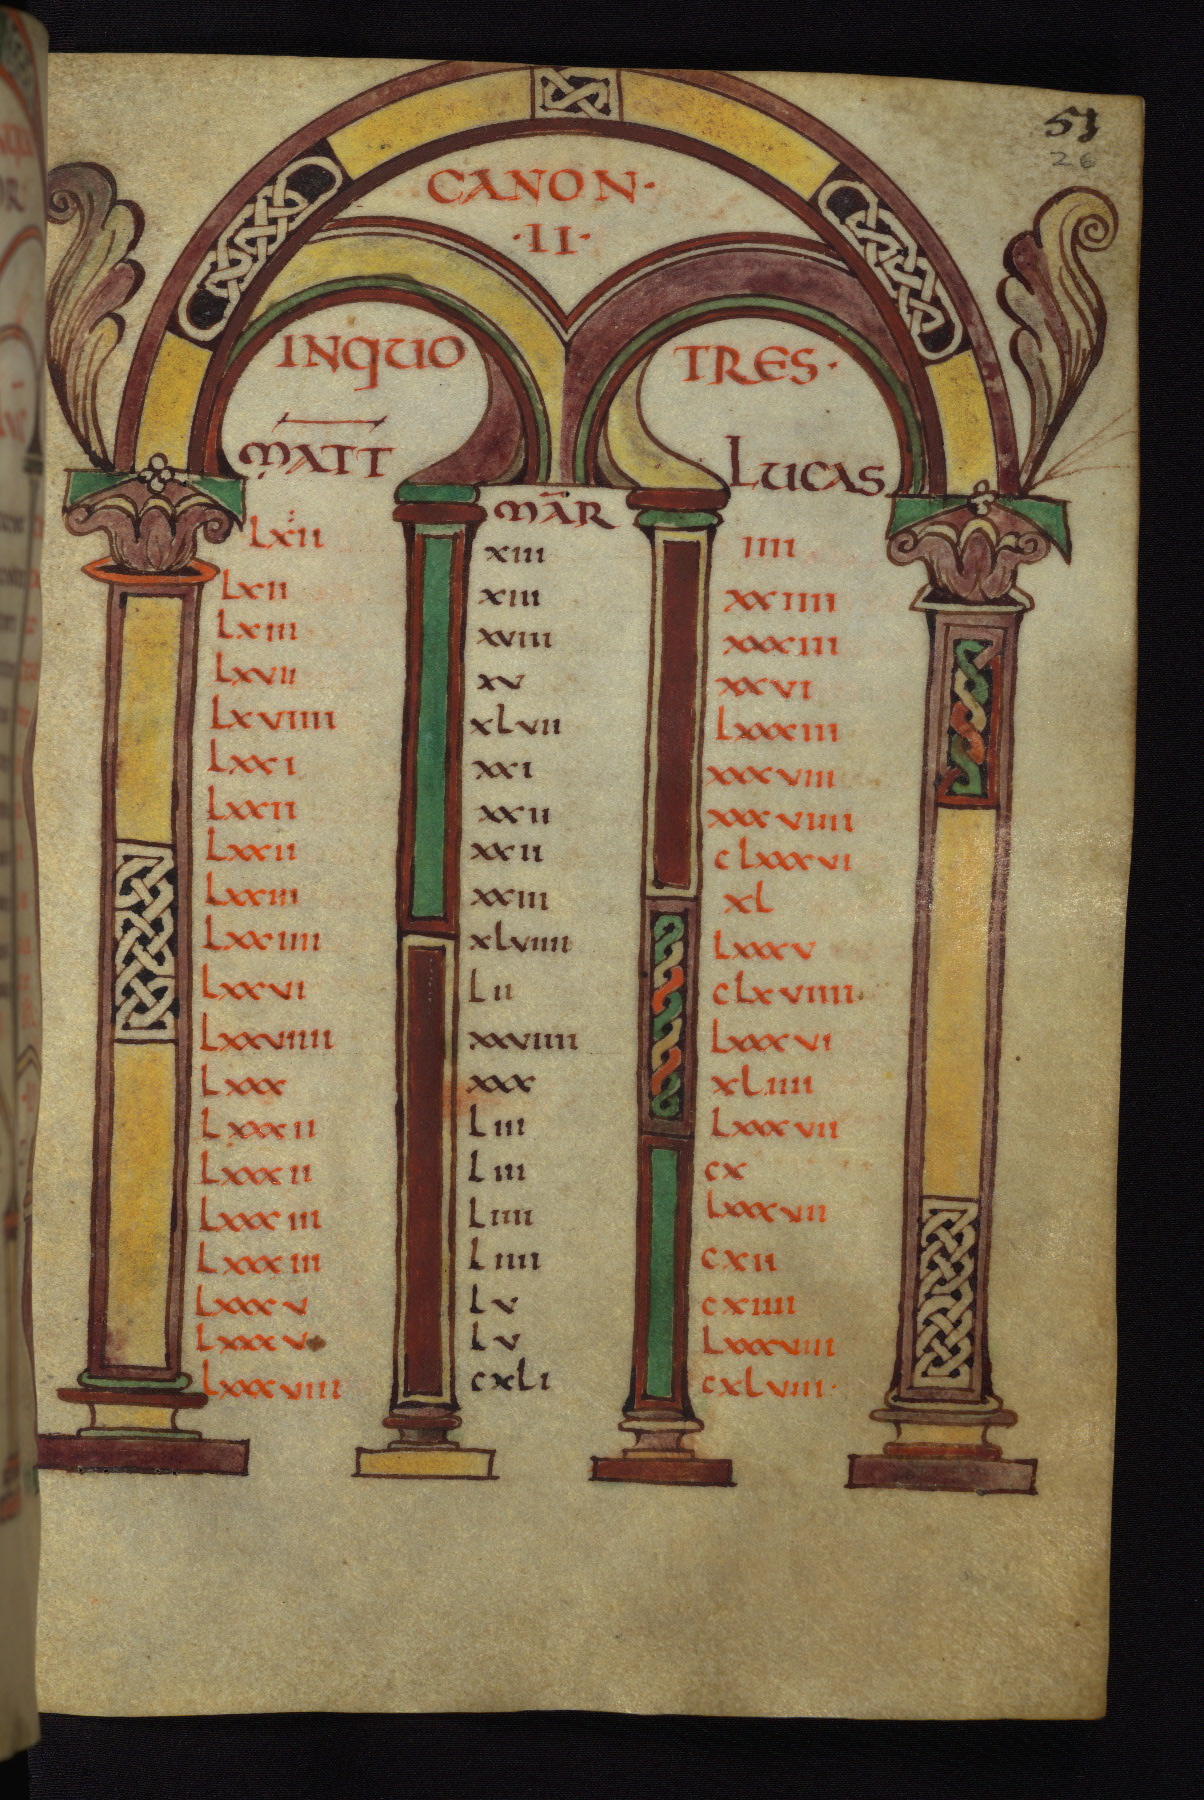 51
26
CANON·
·II·
INQUO TRES·
MATT MAR LUCAS
LXII XIII IIII
LXII XIII XXIIII
LXIII XVIII XXXIII
LXVII XV XXVI
LXVIIII XLVII LXXXIII
LXXI XXI XXXVIII
LXXII XXII XXXVIIII
LXXII XXII CLXXXVI
LXXIII XXIII XL
LXXIIII XLVIIII LXXXV
LXXVI LII CLXVIIII
LXXVIIII XXVIIII LXXXVI
LXXX XXX XLIIII
LXXXII LIII LXXXVII
LXXXII LIII CX
LXXXIII LIIII LXXXVII
LXXXIII LIIII CXII
LXXXV LV CXIIII
LXXXV LV LXXXVIII
LXXXVIII CXLI CXLVIII·